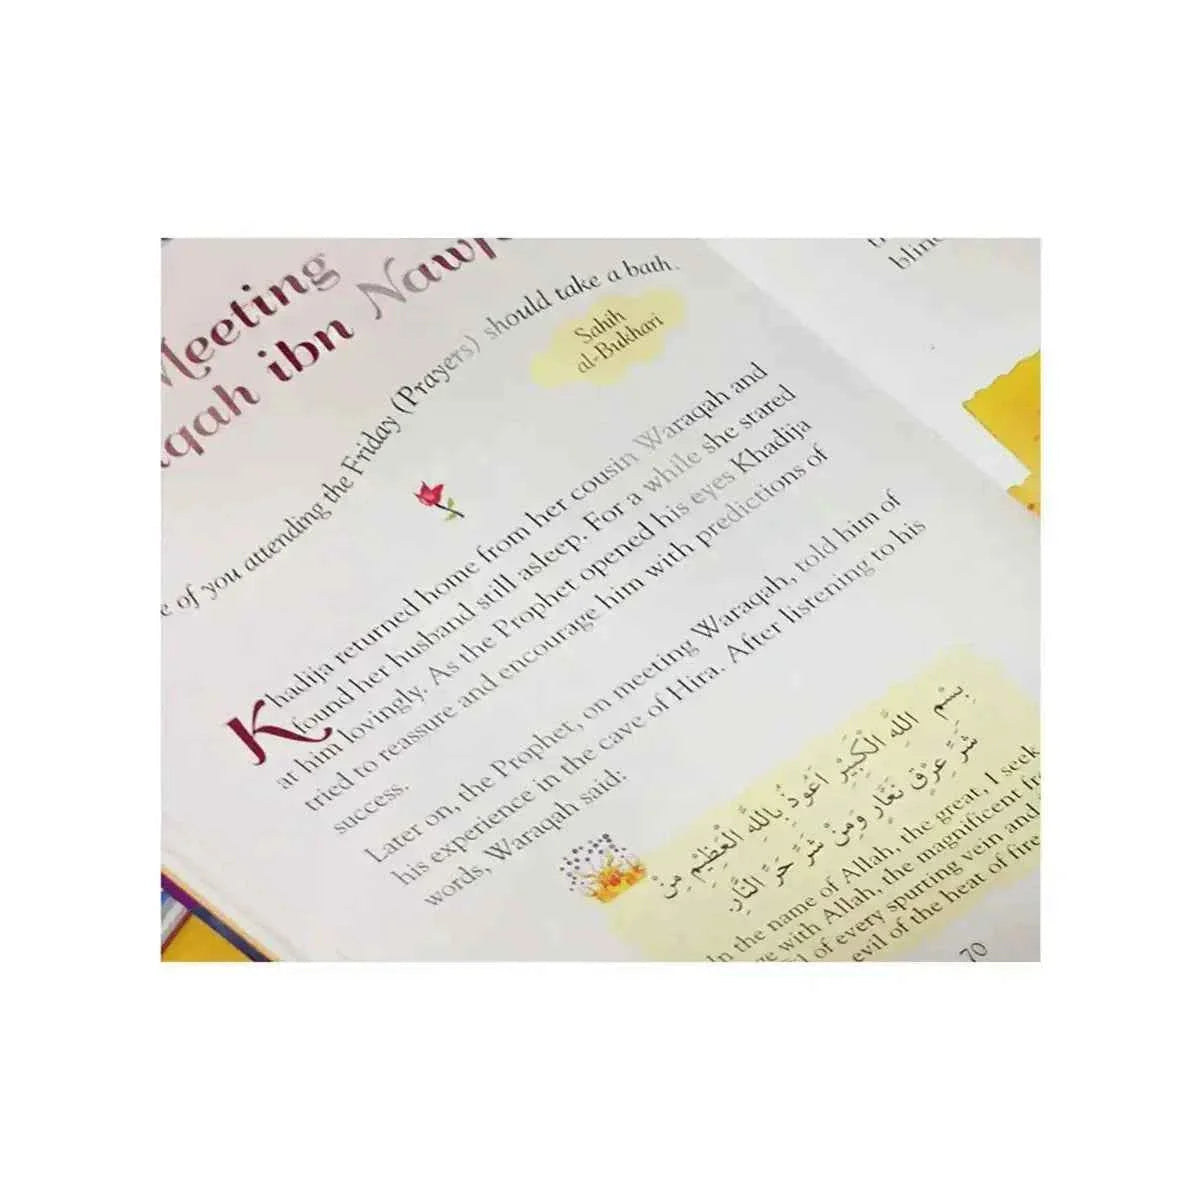 Meeting
ibn
of you attending the Friday (Prayers) should take a bath.
Sahih
al-Bukhari
Khadija returned home from her cousin Waraqah and
found her husband still asleep. For a while she stared
at him lovingly. As the Prophet opened his eyes Khadija
tried to reassure and encourage him with predictions of
success.
Later on, the Prophet, on meeting Waraqah, told him of
his experience in the cave of Hira. After listening to his
words, Waraqah said:
بِسْمِ اللَّهِ الْكَبِيْرِ اَعُوْذُ بِاللَّهِ الْعَظِيْمِ مِنْ
شَرِّ عِرْقٍ نَعَّارٍ وَمِنْ شَرِّ حَرِّ النَّارِ
In the name of Allah, the great, I seek
with Allah, the magnificent
of every spurting vein and
evil of the heat of fire
70